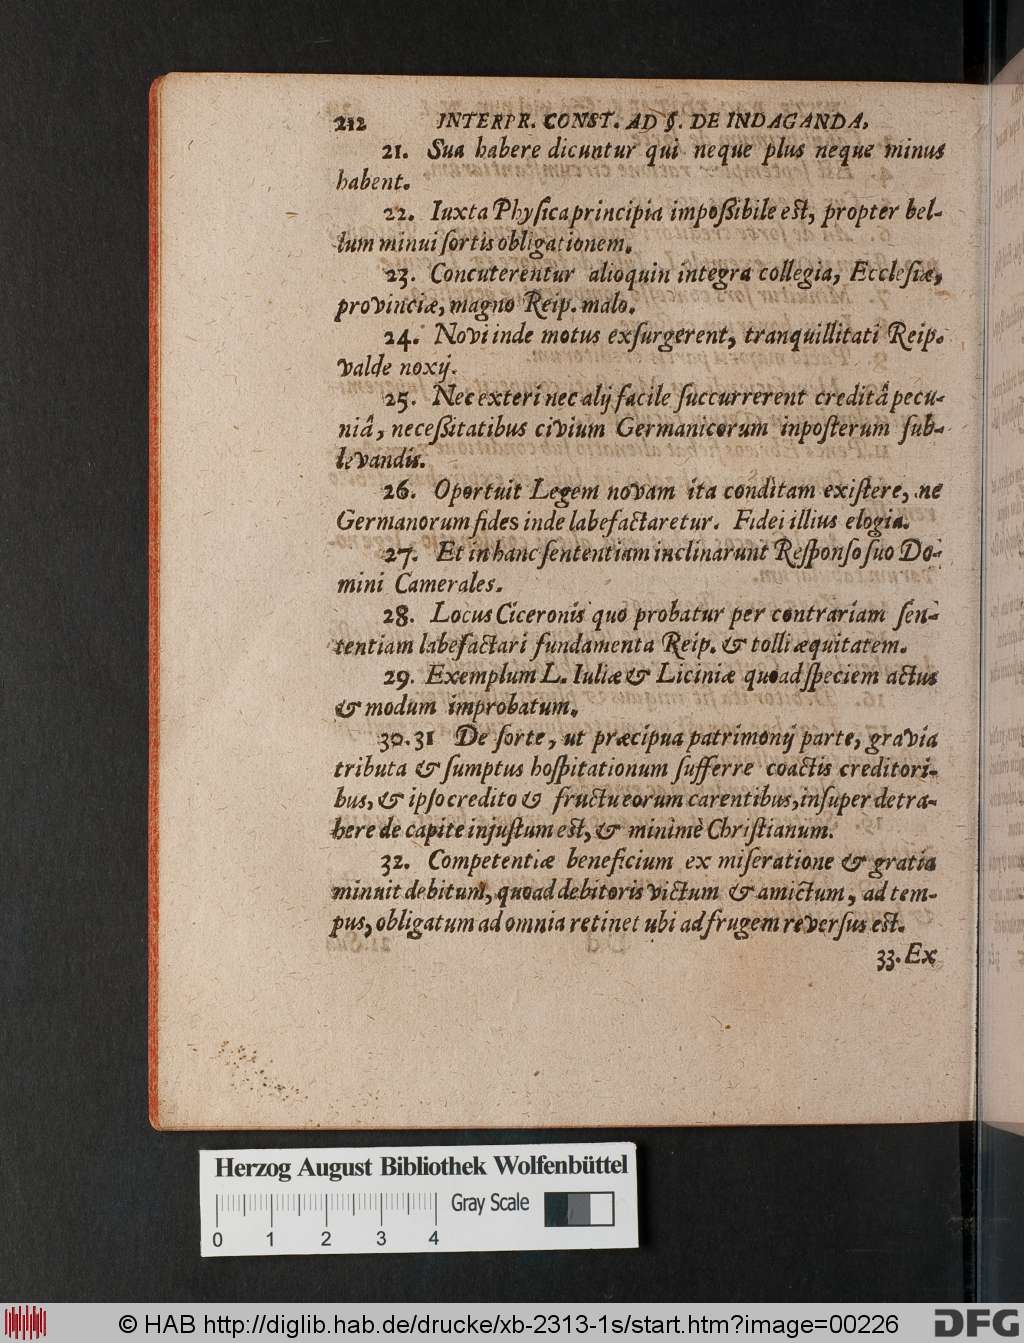 212 INTERPR. CONST. AD §. DE INDAGANDA,
21. Sua habere dicuntur qui neque plus neque minus
habent.
22. Iuxta Physica principia impoßibile est, propter bel-
lum minui sortis obligationem.
23. Concuterentur alioquin integra collegia, Ecclesiæ,
provinciæ, magno Reip. malo.
24. Novi inde motus exsurgerent, tranquillitati Reip.
valde noxij.
25. Nec exteri nec alij facile succurrerent creditâ pecu-
niâ, neceßitatibus civium Germanicorum inposterum sub-
levandis.
26. Oportuit Legem novam ita conditam existere, ne
Germanorum fides inde labefactaretur. Fidei illius elogia.
27. Et in hanc sententiam inclinarunt Responso suo Do-
mini Camerales.
28. Locus Ciceronis quo probatur per contrariam sen-
tentiam labefactari fundamenta Reip. & tolli æquitatem.
29. Exemplum L. Iuliæ & Liciniæ quoad speciem actus
& modum improbatum.
30.31 De sorte, ut præcipua patrimonij parte, gravia
tributa & sumptus hospitationum sufferre coactis creditori-
bus, & ipso credito & fructu eorum carentibus, insuper detra-
here de capite injustum est, & minimè Christianum.
32. Competentiæ beneficium ex miseratione & gratia
minuit debitum, quoad debitoris victum & amictum, ad tem-
pus, obligatum ad omnia retinet ubi ad frugem reversus est.
33. Ex
Herzog August Bibliothek Wolfenbüttel
Gray Scale
0 1 2 3 4
© HAB http://diglib.hab.de/drucke/xb-2313-1s/start.htm?image=00226
DFG